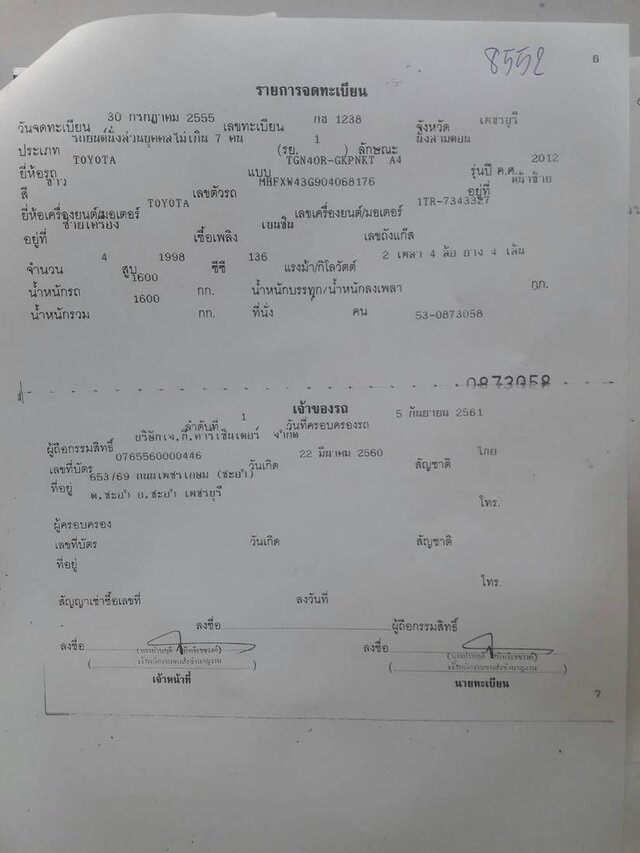 8552
6
รายการจดทะเบียน
วันจดทะเบียน 30 กรกฎาคม 2555 เลขทะเบียน กธ 1238 จังหวัด เพชรบุรี
ประเภท รถยนต์นั่งส่วนบุคคลไม่เกิน 7 คน (รย. 1 ) ลักษณะ นั่งสามตอน
ยี่ห้อรถ TOYOTA แบบ TGN40R-GKPNKT A4 รุ่นปี ค.ศ. 2012
สี ขาว เลขตัวรถ MHFXW43G904068176 อยู่ที่ หน้าซ้าย
ยี่ห้อเครื่องยนต์/มอเตอร์ TOYOTA เลขเครื่องยนต์/มอเตอร์ 1TR-7343327
อยู่ที่ ซ้ายเครื่อง เชื้อเพลิง เบนซิน เลขถังแก๊ส
จำนวน 4 สูบ 1998 ซีซี 136 แรงม้า/กิโลวัตต์ 2 เพลา 4 ล้อ ยาง 4 เส้น
น้ำหนักรถ 1600 กก. น้ำหนักบรรทุก/น้ำหนักลงเพลา กก.
น้ำหนักรวม 1600 กก. ที่นั่ง คน 53-0873058
0873058
เจ้าของรถ
ลำดับที่ 1 วันที่ครอบครองรถ 5 กันยายน 2561
ผู้ถือกรรมสิทธิ์ บริษัทเจ.ที.คาร์เซ็นเตอร์ จำกัด
เลขที่บัตร 0765560000446 วันเกิด 22 มีนาคม 2560 สัญชาติ ไทย
ที่อยู่ 653/69 ถนนเพชรเกษม (ชะอำ)
ต.ชะอำ อ.ชะอำ เพชรบุรี โทร.
ผู้ครอบครอง
เลขที่บัตร วันเกิด สัญชาติ
ที่อยู่
โทร.
สัญญาเช่าซื้อเลขที่ ลงวันที่
ลงชื่อ ผู้ถือกรรมสิทธิ์
ลงชื่อ ลงชื่อ
เจ้าพนักงานขนส่งชำนาญงาน เจ้าพนักงานขนส่งชำนาญงาน
เจ้าหน้าที่ นายทะเบียน
7